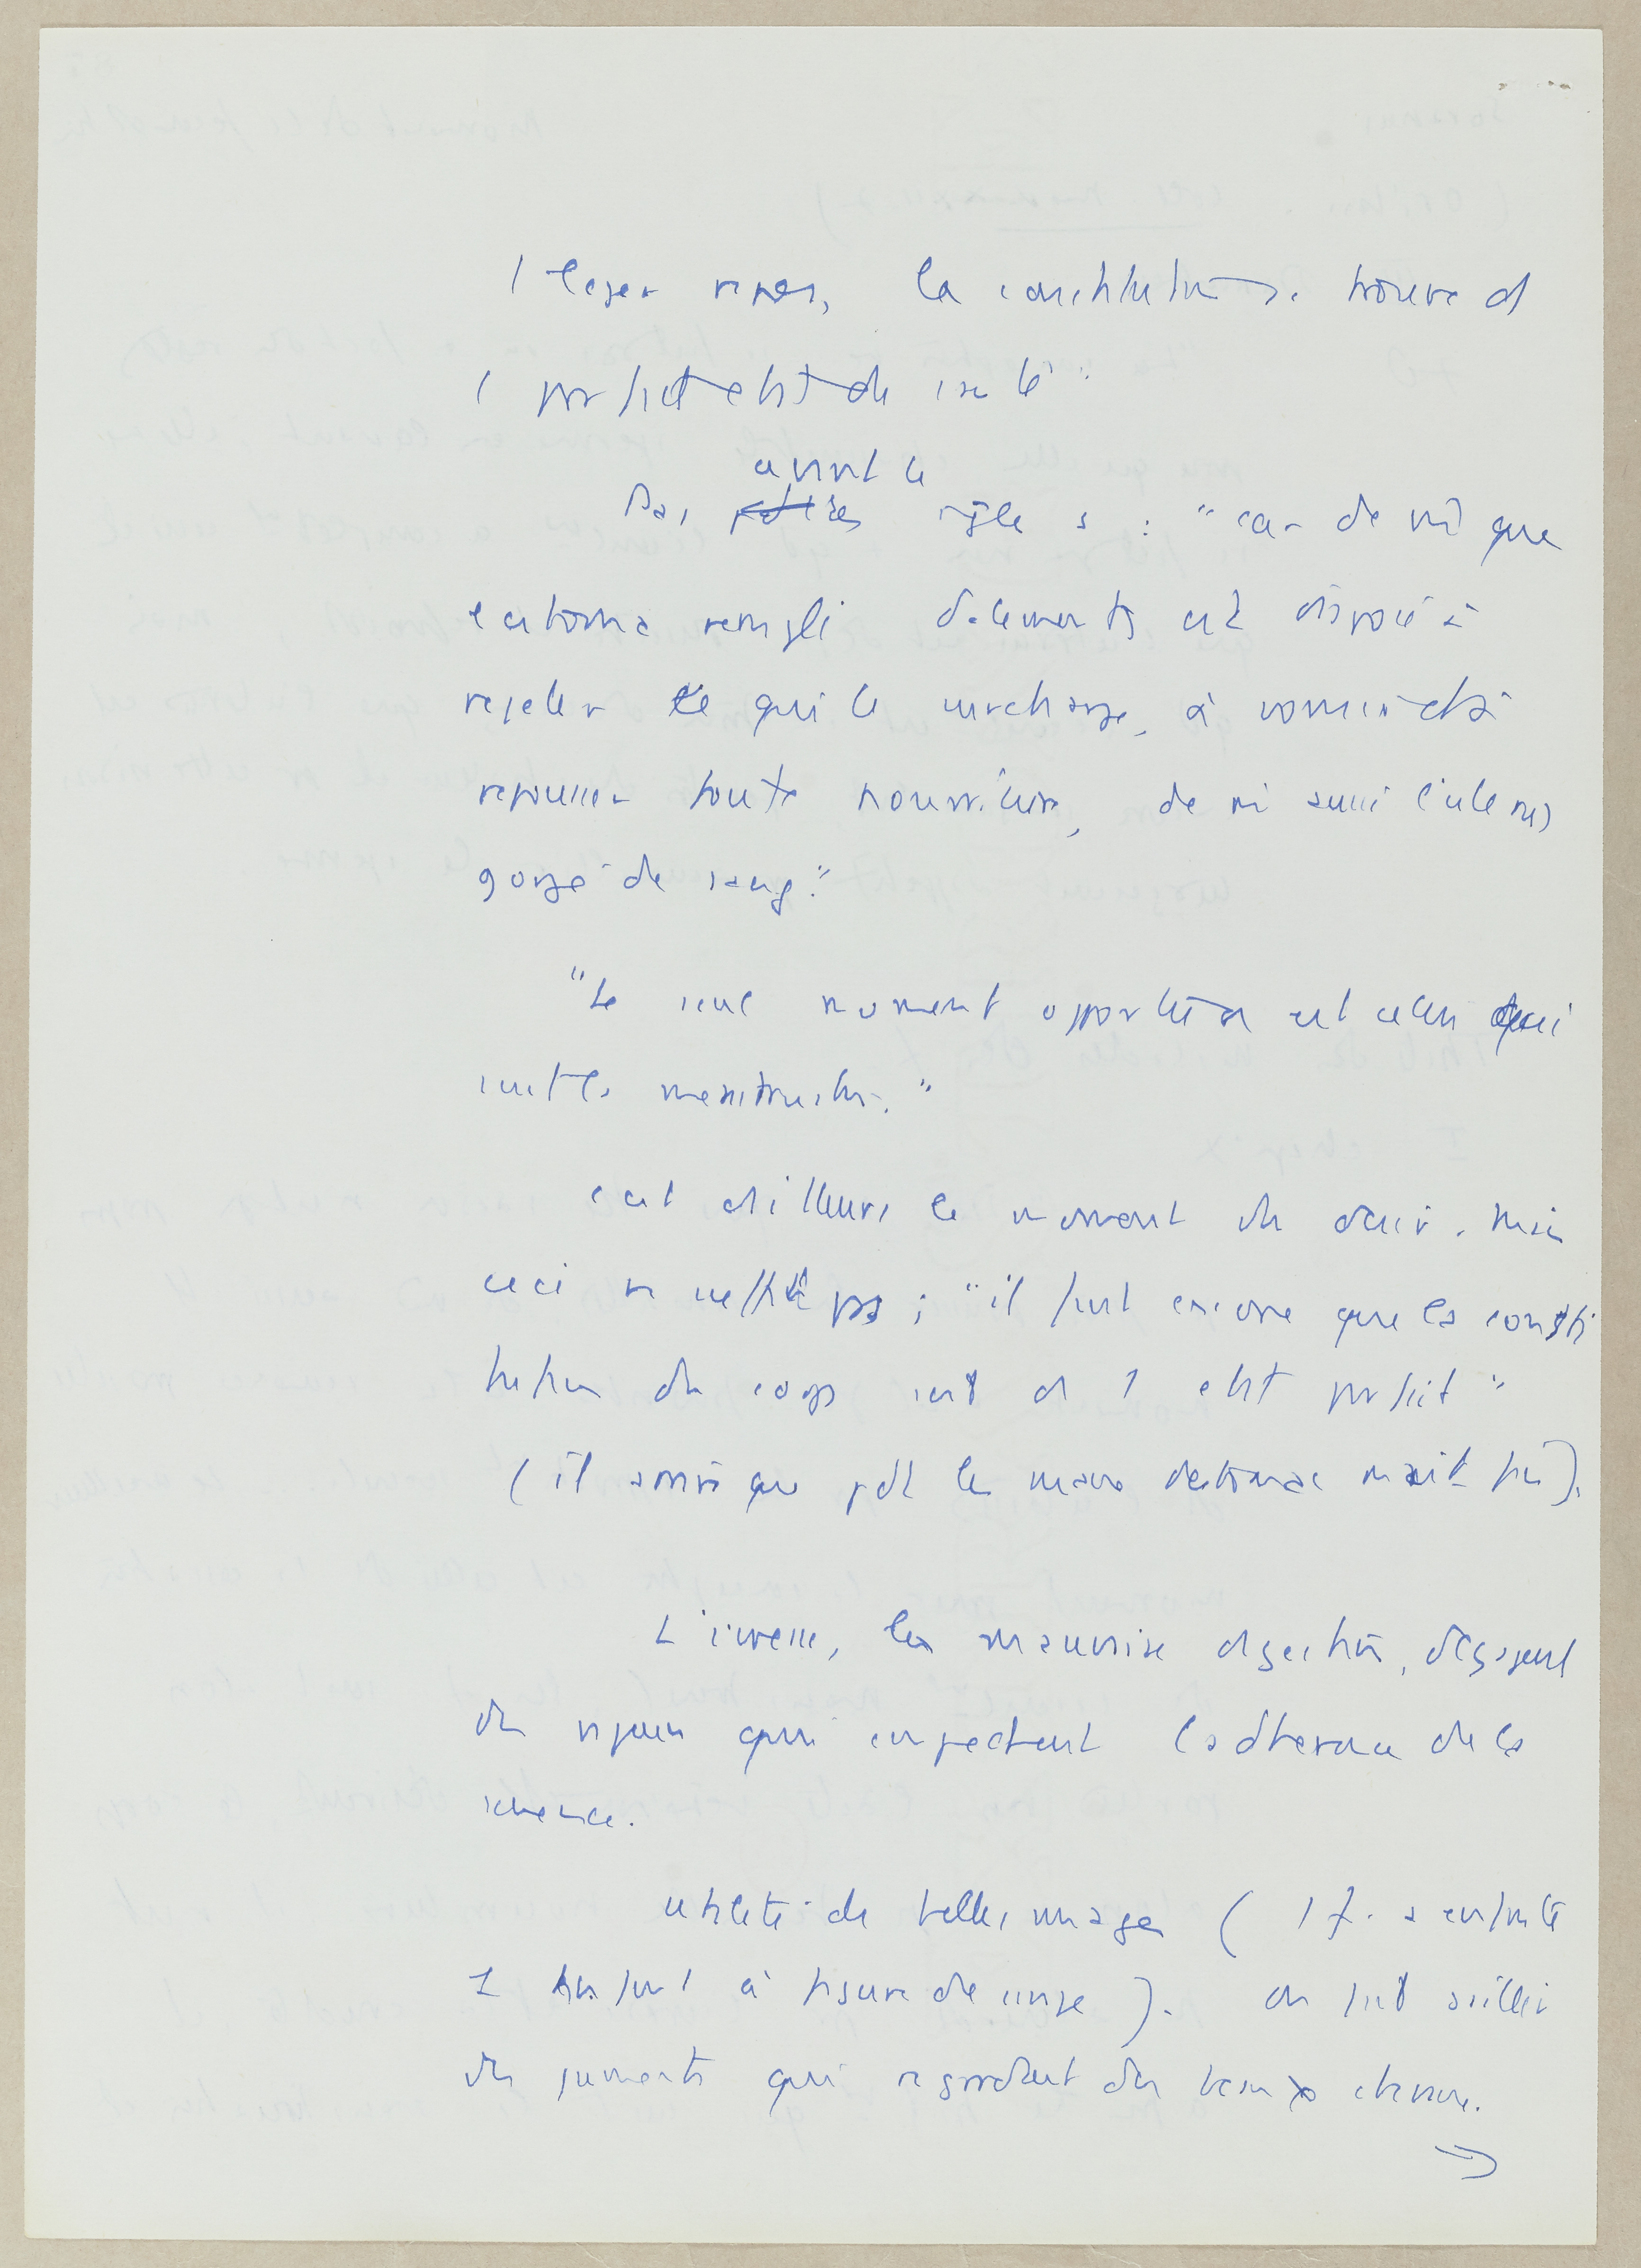 1 leger repas, la constitution se trouve ds
1 parfait etat de sante"
avant le
Pas règles : "car de m̂ que
l estomac rempli d'alements est disposé à
rejeter ce qui le surcharge, à vomir et à
repousser toute nourriture, de m̂ aussi l'uterus
gorgé de sang."
"Le seul moment opportun est celui qui
suit les menstruation."
c est d'ailleurs le moment du désir. Mais
ceci ne suffit pas ; "il faut encore que la consti
tution du corps soit ds 1 etat parfait"
(il arrive que pdt les
L'ivresse, les mauvaise digestion, dégagent
des vapeurs qui empechent l'adherence de la
semence.
utilité de telles images ( 1 f. a enfanté
1 enfant à figure de singe ). On fait saillir
des juments qui regardent des beaux chevaux.
→